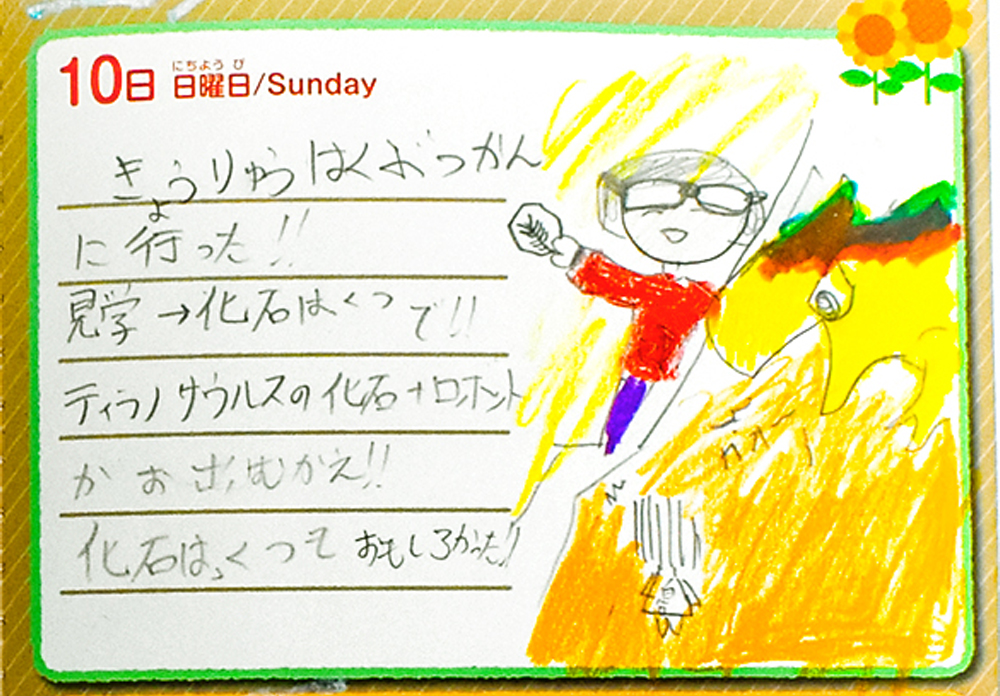 10日 日曜日/Sunday
にちようび
きょうりゅうはくぶつかん
に行った!!
見学→化石はくつで!!
ティラノサウルスの化石+ロボット
がお出むかえ!!
化石はくつもおもしろかった!!
ガオー